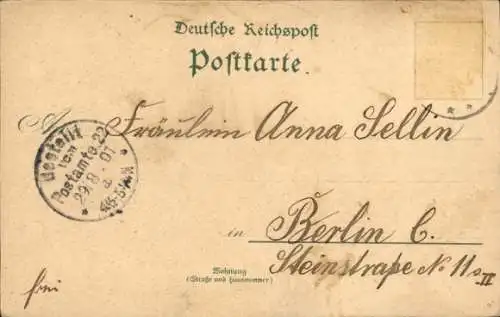 Deutsche Reichspost
Postkarte
An
Fräulein Anna Sellin
Bestellt
vom
Postamte 22
29.8.01
in Berlin C.
Steinstraße No 11a II
Wohnung
(Straße und Hausnummer)
frei